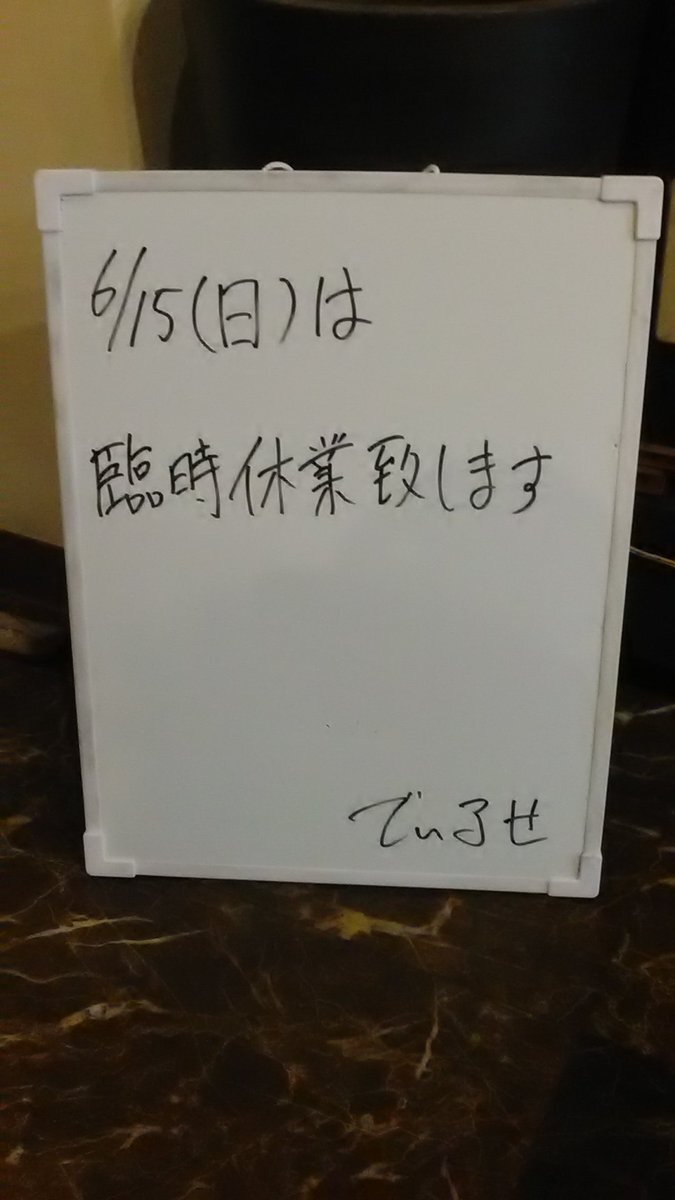 6/15(日)は
臨時休業致します
でぃるせ